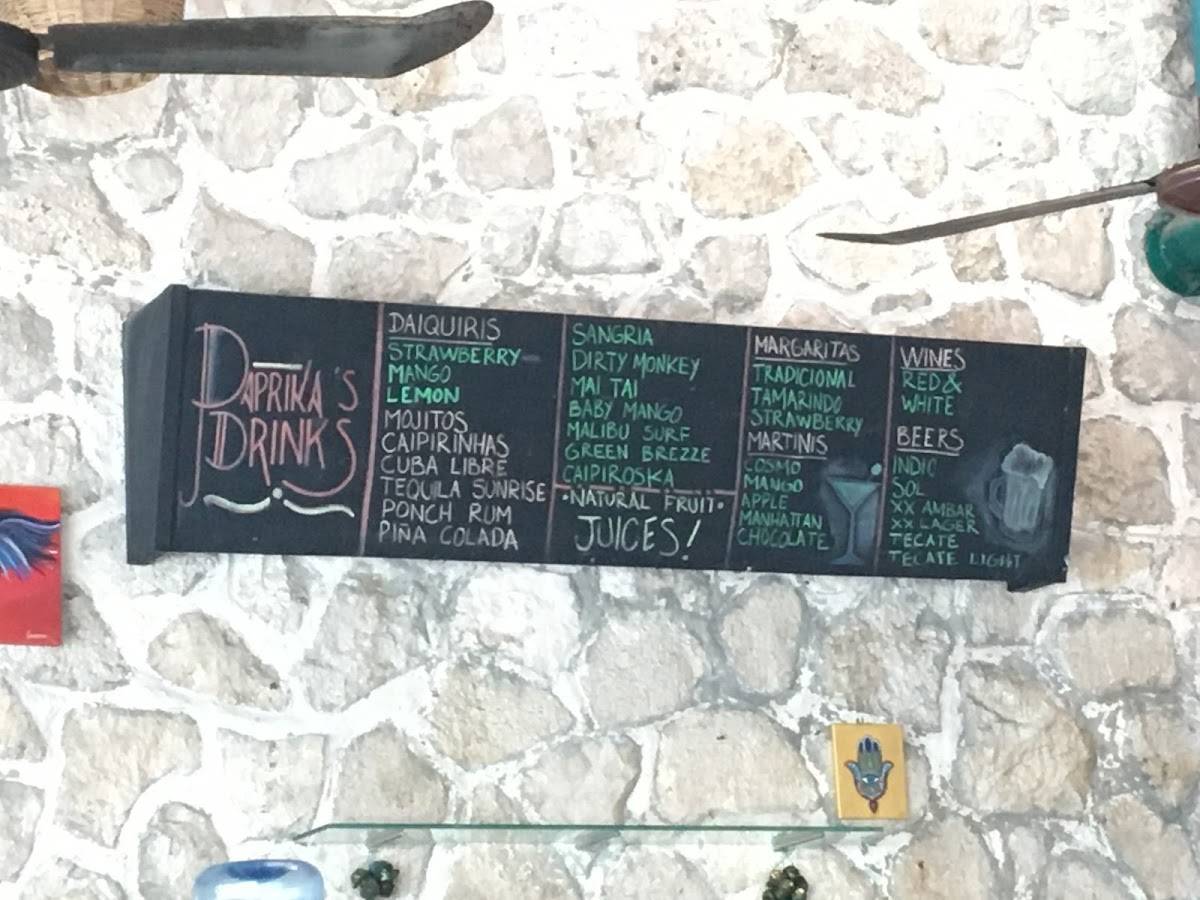 PAPRIKA'S
DRINKS
DAIQUIRIS
STRAWBERRY
MANGO
LEMON
MOJITOS
CAIPIRINHAS
CUBA LIBRE
TEQUILA SUNRISE
PONCH RUM
PIÑA COLADA
SANGRIA
DIRTY MONKEY
MAI TAI
BABY MANGO
MALIBU SURF
GREEN BREZZE
CAIPIROSKA
•NATURAL FRUIT•
JUICES!
MARGARITAS
TRADICIONAL
TAMARINDO
STRAWBERRY
MARTINIS
COSMO
MANGO
APPLE
MANHATTAN
CHOCOLATE
WINES
RED &
WHITE
BEERS
INDIO
SOL
XX AMBAR
XX LAGER
TECATE
TECATE LIGHT